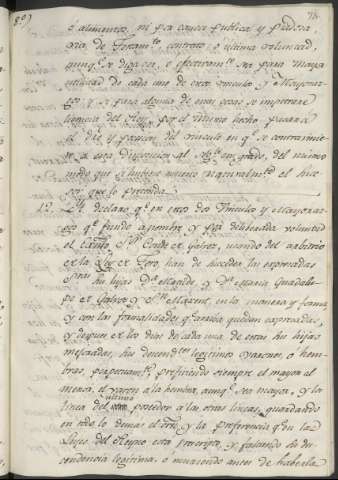 ó alimentos, ni por causa publica y Piadosa,
ora de Testam.to contrato, ó ultima voluntad,
aunq.e se diga ser, ó efectivam.te sea para mayor
utilidad de cada uno de estos vinculos, y Mayoraz-
gos, y si para alguna de estas cosas se impetrare
licencia del Rey por el mismo hecho pasará
el dro. y posesion del vinculo en q.e se contravini-
ere a esta disposicion al sig.te en grado, del mismo
modo que si hubiera muerto naturalm.te el suce-
sor que lo pretenda.
12. It. declara q.e en estos dos Vinculos y Mayoraz-
gos q.e fundo a nombre y por deliberada voluntad
el exmo. S.or Conde de Galvez, usando del arbitrio
de la Ley de Toro, han de suceder las expresadas
sus hijas D.a Matilde, y D.a Maria Guadalu-
pe de Galvez y S.n Maxent, en la manera y forma
y con las formalidades q.e arriba quedan expresadas,
y despues de los dias de cada una de estas sus hijas
mejoradas, sus descend.tes legitimos varones, ó hem-
bras perpetuam.te, prefiriendo siempre el mayor al
menor, el varon a la hembra, aunq.e sea mayor, y la
linea del ultimo poseedor a las otras lineas, guardando
en todo lo demas el orn. y la preferencia q.e en las
Leyes del Reyno esta prescripto, y faltando su des-
cendencia legitima, ó muriendo antes de haberla